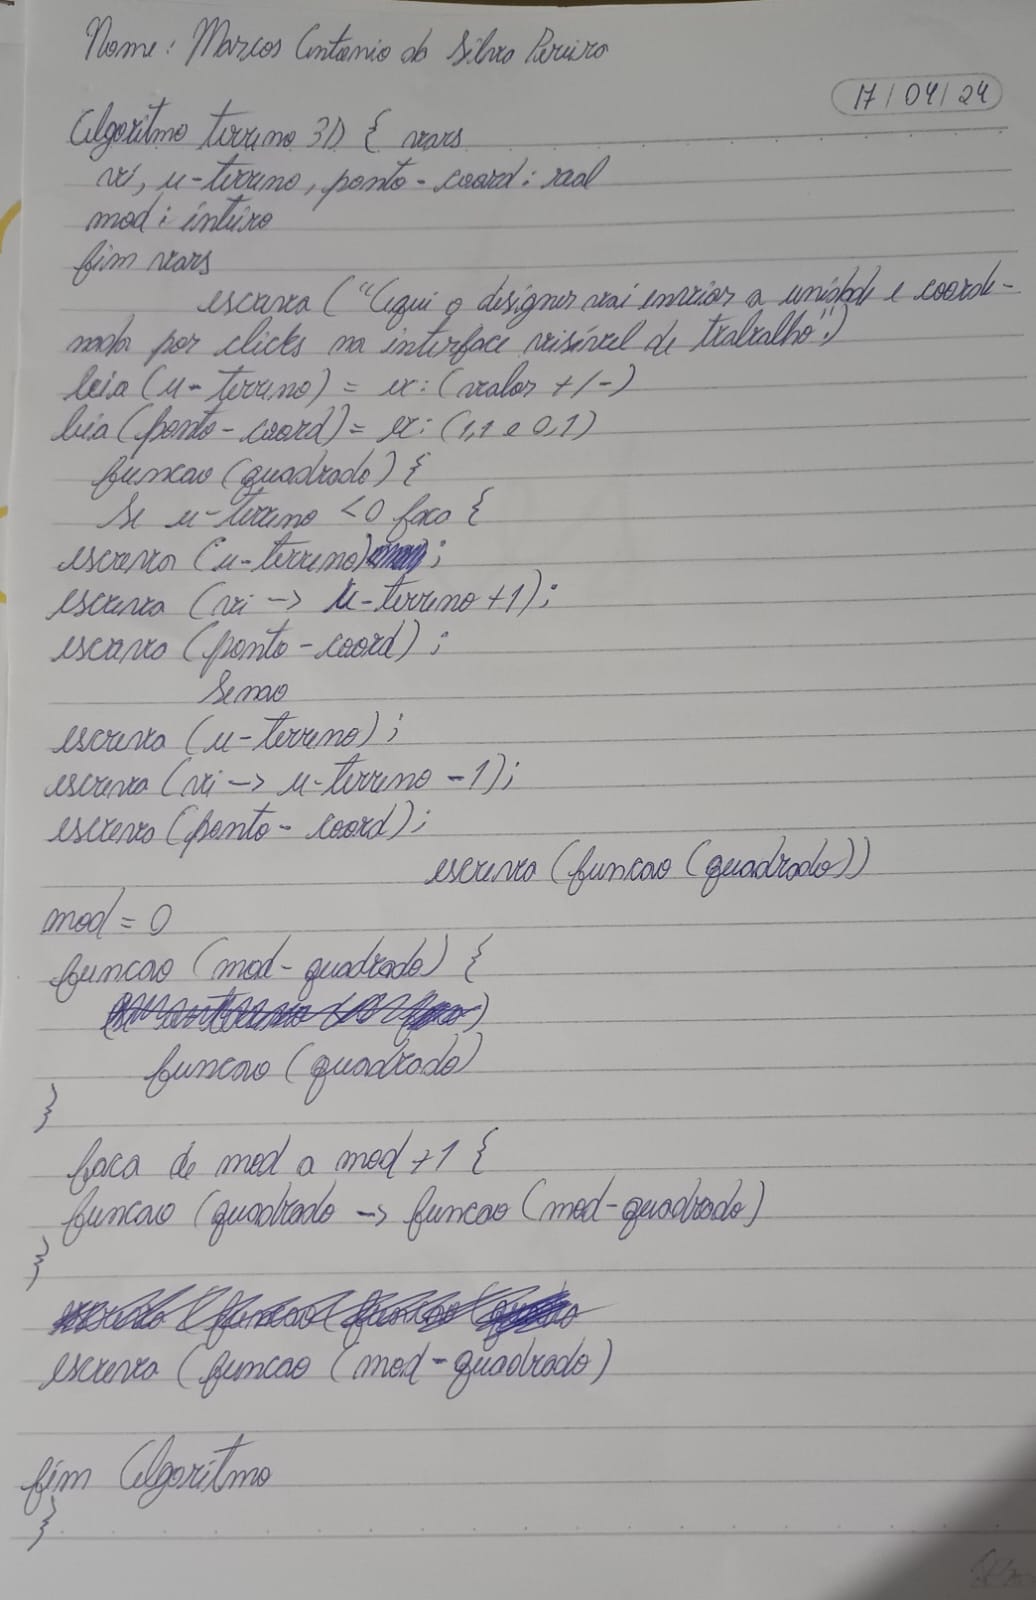 Nome: Marcos Antonio da Silva Pereira
17/04/24
Algoritmo terreno 3D { vars
vi, u-terreno, ponto-coord: real
mod: inteiro
fim vars
escreva ("Aqui o designer vai enviar a unidade e coorde-
nada por clicks na interface visível de trabalho")
leia (u-terreno) = ex: (valor +/-)
leia (ponto-coord) = ex: (1,1 e 0,1)
funcao (quadrado) {
Se u-terreno <0 faca {
escreva (u-terreno);
escreva (vi -> u-terreno +1);
escreva (ponto-coord);
Senao
escreva (u-terreno);
escreva (vi -> u-terreno -1);
escreva (ponto-coord);
escreva (funcao (quadrado))
mod = 0
funcao (mod-quadrado) {
funcao (quadrado)
}
faca de mod a mod +1 {
funcao (quadrado -> funcao (mod-quadrado)
}
escreva (funcao (mod-quadrado)
fim Algoritmo
}